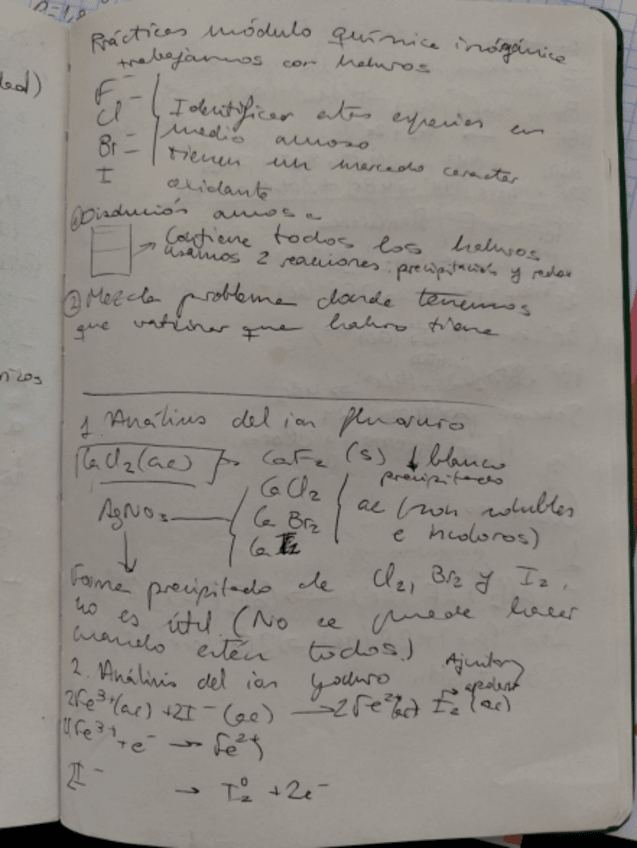 Prácticas módulo química inorgánica
trabajamos con haluros
F⁻
Cl⁻
Br⁻
I
Identificar estas especies en
medio acuoso
tienen un marcado caracter
oxidante
① Disolución acuosa
Contiene todos los haluros
usamos 2 reacciones: precipitación y redox
② Mezcla problema donde tenemos
que vaticinar que haluro tiene
1. Análisis del ion fluoruro
CaCl₂ (ac) → CaF₂ (s) ↓ blanco
precipitado
AgNO₃
CaCl₂
CaBr₂
CaI₂
ac (son solubles
e incoloros)
Forma precipitado de Cl₂, Br₂ y I₂,
no es útil (No se puede hacer
cuando estén todos)
2. Análisis del ion yoduro
Ajustar
2Fe³⁺(ac) + 2I⁻ (ac) → 2Fe²⁺(ac) I₂ (ac)
Fe³⁺ + e⁻ → Fe²⁺
2I⁻ → I₂⁰ + 2e⁻